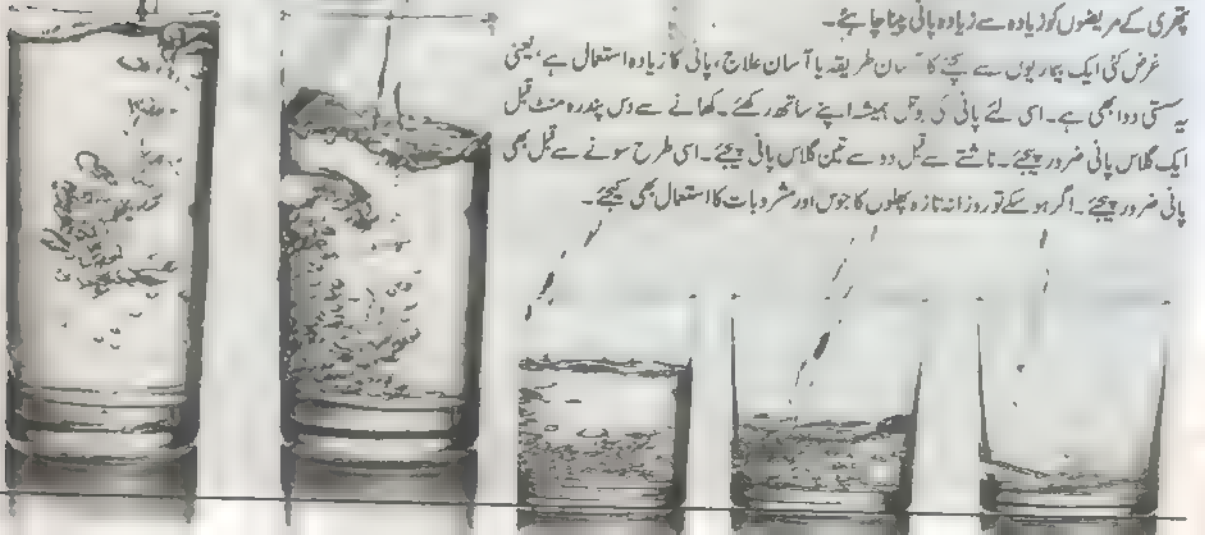 پتھری کے مریضوں کو زیادہ سے زیادہ پانی پینا چاہئے۔
غرض کئی ایک بیماریوں سے بچنے کا آسان طریقہ یا آسان علاج، پانی کا زیادہ استعمال ہے، یعنی
یہ سستی دوا بھی ہے۔ اسی لئے پانی کی بوتل ہمیشہ اپنے ساتھ رکھئے۔ کھانے سے دس پندرہ منٹ قبل
ایک گلاس پانی ضرور پیجئے۔ ناشتے سے قبل دو سے تین گلاس پانی پیجئے۔ اسی طرح سونے سے قبل بھی
پانی ضرور پیجئے۔ اگر ہو سکے تو روزانہ تازہ پھلوں کا جوس اور مشروبات کا استعمال بھی کیجئے۔